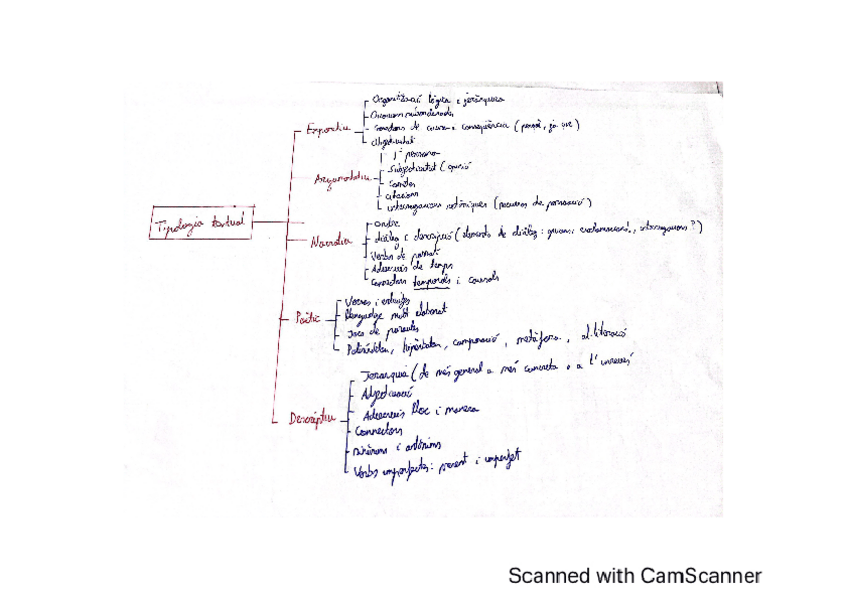 Organització lògica i jeràrquica
Oracions subordinades
Expositiu
Connectors de causa i conseqüència (perquè, ja que)
Objectivitat
1ª persona
Subjectivitat (opinió
Argumentatiu
Citacions
interrogacions retòriques (recursos de persuasió)
Tipologia textual
Ordre
diàleg i descripció (elements de diàleg: guions, exclamacions, interrogacions?)
Narratiu
Verbs de passat
Adverbis de temps
Connectors temporals i causals
Versos i estrofes
Llenguatge molt elaborat
Poètic
Joc de paraules
Polisíndeton, hipèrbaton, comparació, metàfora, al.literació
Jerarquia (de més general a més concreta o a l'inrevés
Adjectivació
Adverbis lloc i manera
Descriptiu
Connectors
Sinònims i antònims
Verbs imperfectes: present i imperfet
Scanned with CamScanner